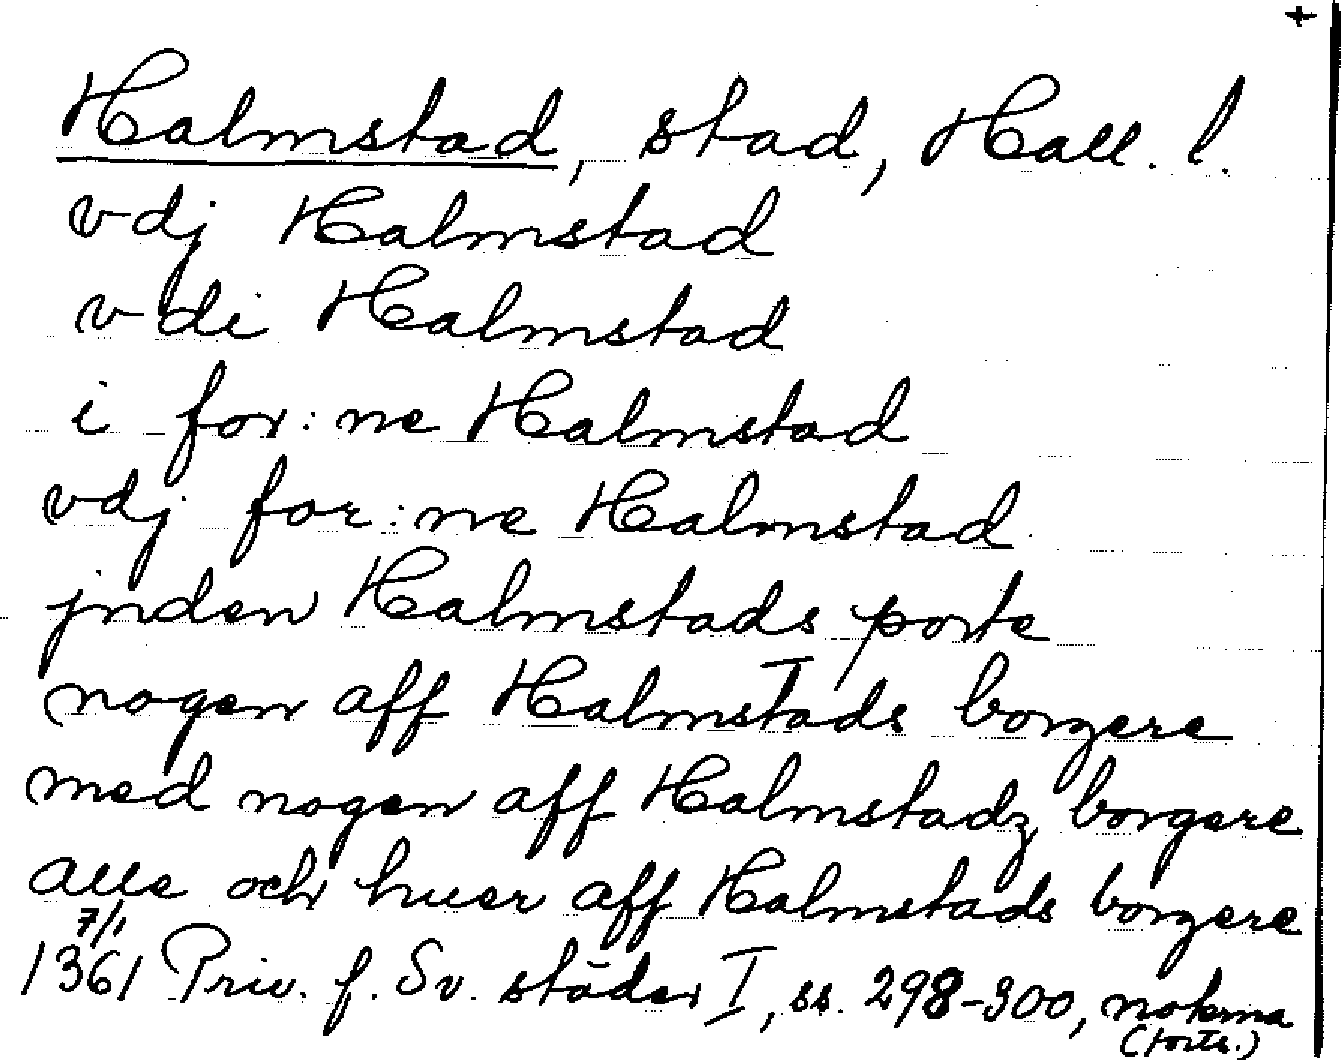 +
Halmstad, stad, Hall. l.
vdj Halmstad
vdi Halmstad
i for:ne Halmstad
vdj for:ne Halmstad
jnden Halmstads porte
nogen aff Halmstads borgere
med nogen aff Halmstadz borgere
alle och huer aff Halmstads borgere
7/1
1361 Priv. f. Sv. städer I, ss. 298-300, noterna
(forts.)